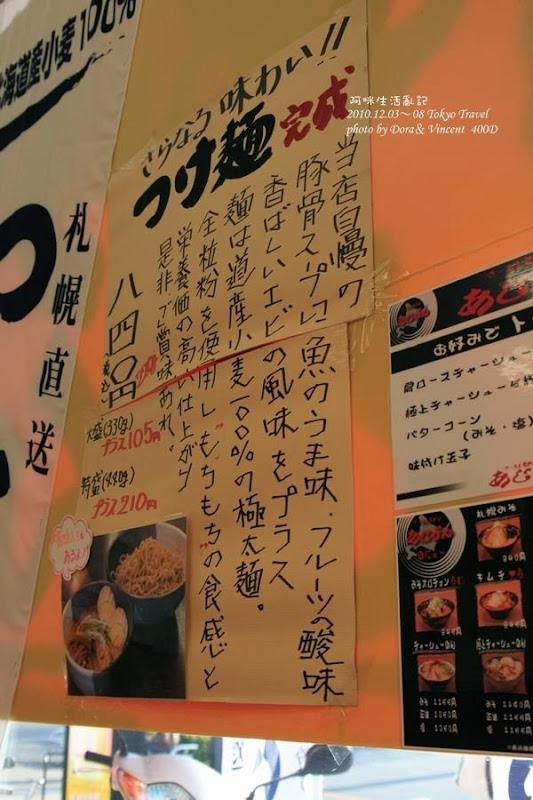 阿咪生活亂記
2010.12.03～08 Tokyo Travel
photo by Dora & Vincent 400D
北海道産小麦100%
札幌直送
さらなる味わい!!
つけ麺完成
当店自慢の
豚骨スープに魚のうま味、フルーツの酸味
香ばしいエビの風味をプラス
麺は道産小麦一〇〇%の極太麺。
全粒粉を使用し"もちもち"の食感と
栄養価の高い仕上がり
是非ご賞味あれ。
八四〇円
(税込)
大盛(330g)
プラス105円
特盛(440g)
プラス210円
お好みでト
肩ロースチャーシュー
極上チャーシュー
バターコーン
(みそ・
味付け玉子
札幌みそ
キムチ